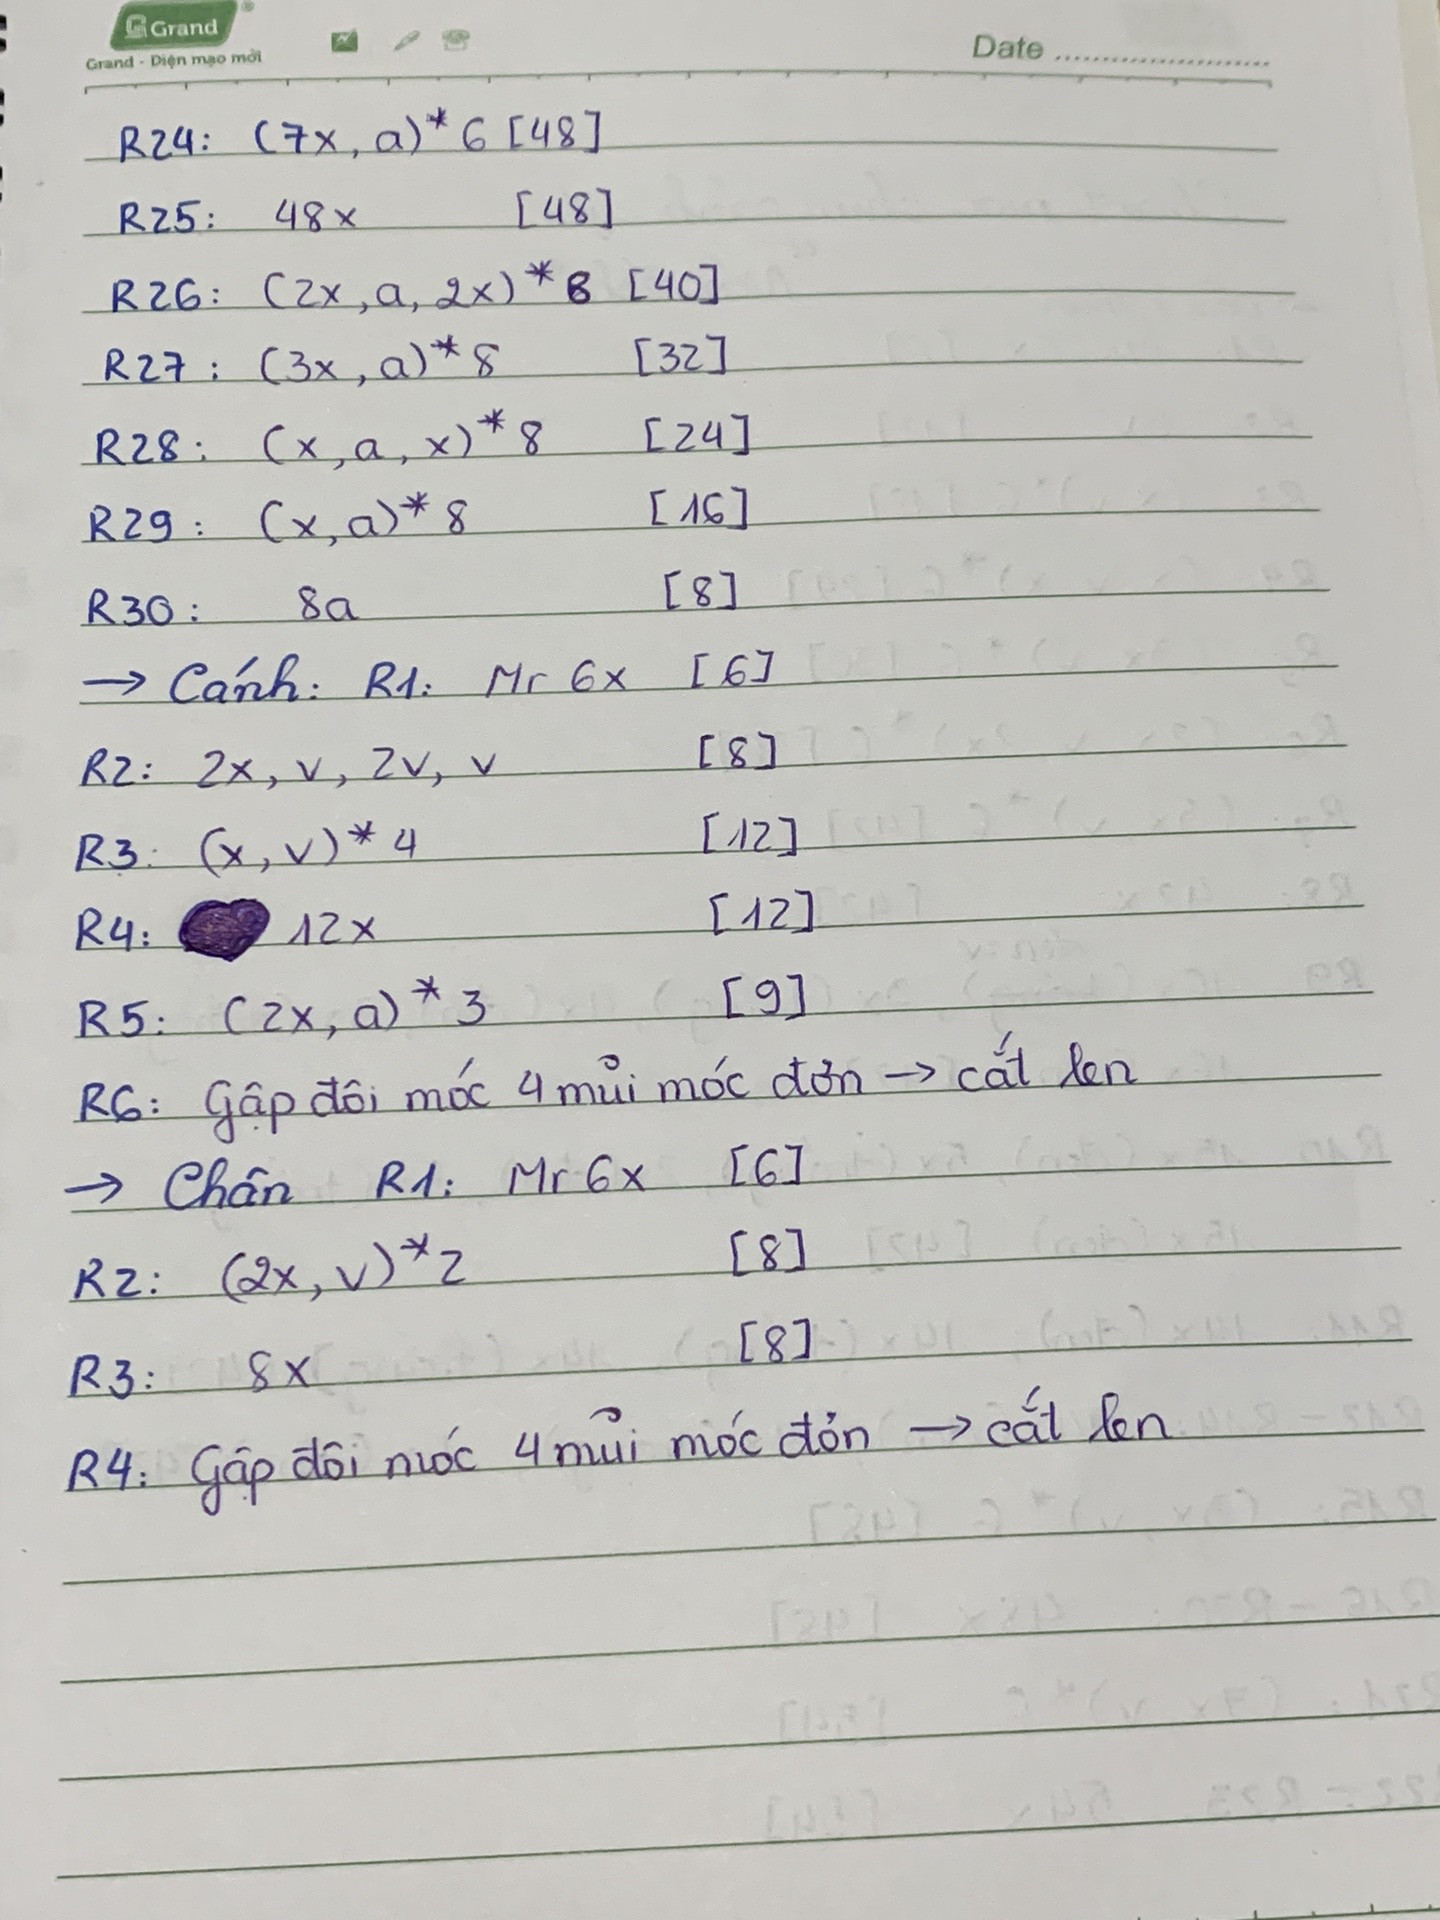 Grand
Grand - Diện mạo mới
Date
R24: (7x, a)* 6 [48]
R25: 48x [48]
R26: (2x, a, 2x)* 8 [40]
R27: (3x, a)* 8 [32]
R28: (x, a, x)* 8 [24]
R29: (x, a)* 8 [16]
R30: 8a [8]
→ Cánh: R1: Mr 6x [6]
R2: 2x, v, 2v, v [8]
R3: (x, v)* 4 [12]
R4: 12x [12]
R5: (2x, a)* 3 [9]
R6: Gập đôi móc 4 mũi móc đơn → cắt len
→ Chân R1: Mr 6x [6]
R2: (2x, v)* 2 [8]
R3: 8x [8]
R4: Gập đôi móc 4 mũi móc đơn → cắt len